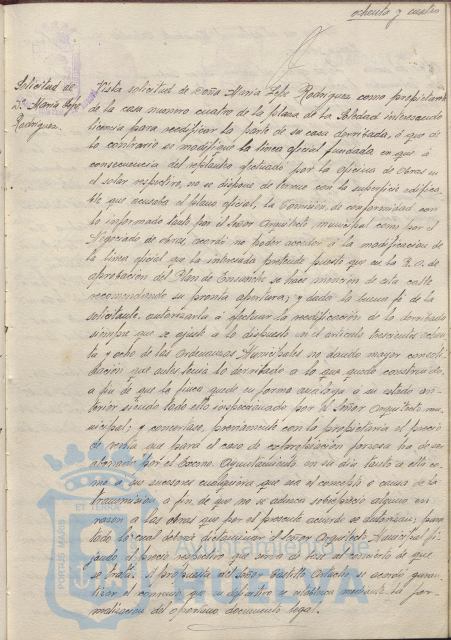 ochenta y cuatro
Solicitud de
Dª María Lefe
Rodríguez.
Vista solicitud de Doña María Lefe Rodríguez como propietaria
de la casa numero cuatro de la plaza de la Soledad interesando
licencia para reedificar la parte de su casa derribada, ó que de
lo contrario se modifique la linea oficial fundada en que á
consecuencia del replanteo efectuado por la oficina de Obras en
el solar respectivo, no se dispone de terreno con la superficie edifica-
ble que acusaba el plano oficial, la Comisión de conformidad con
lo informado tanto por el Señor Arquitecto municipal como por el
Negociado de obras, acordó no poder acceder á la modificacion de
la linea oficial que la interesada pretende puesto que en la R. O. de
aprobación del Plan de Ensanche se hace mención de esta calle
recomendando su pronta apertura; y dada la buena fé de la
solicitante, autorizarla á efectuar la reedificación de lo derribado
siempre que se ajuste á lo dispuesto en el articulo trescientos ochen-
ta y ocho de las Ordenanzas Municipales no dando mayor consoli-
dación que antes tenia lo derribado á lo que quede construido,
a fin de que la finca quede en forma análoga á su estado an-
terior siendo todo ello inspeccionado por el Señor Arquitecto mu-
nicipal; y conviniese, previamente con la propietaria el precio
de venta que para el caso de expropiación forzosa ha de ser
abonado por el Excmo. Ayuntamiento en su dia tanto a ella co-
mo á sus sucesores cualquiera que sea el concepto ó causa de la
transmisión, a fin de que no se aduzca sobreprecio alguno en
razon a las obras que por el presente acuerdo se autorizan; para
todo lo cual deberá dictaminar el Señor Arquitecto Municipal fi-
jando el precio respectivo que sirva de base al convenio de que
se trata. A propuesta del Señor Castillo se acordó garan-
tizar el convenio que en definitiva se establezca mediante la for-
malización del oportuno documento legal.
PORTUS MARIS
ET TERRAE
CUSTODIA
Ayuntamiento de
HUELVA